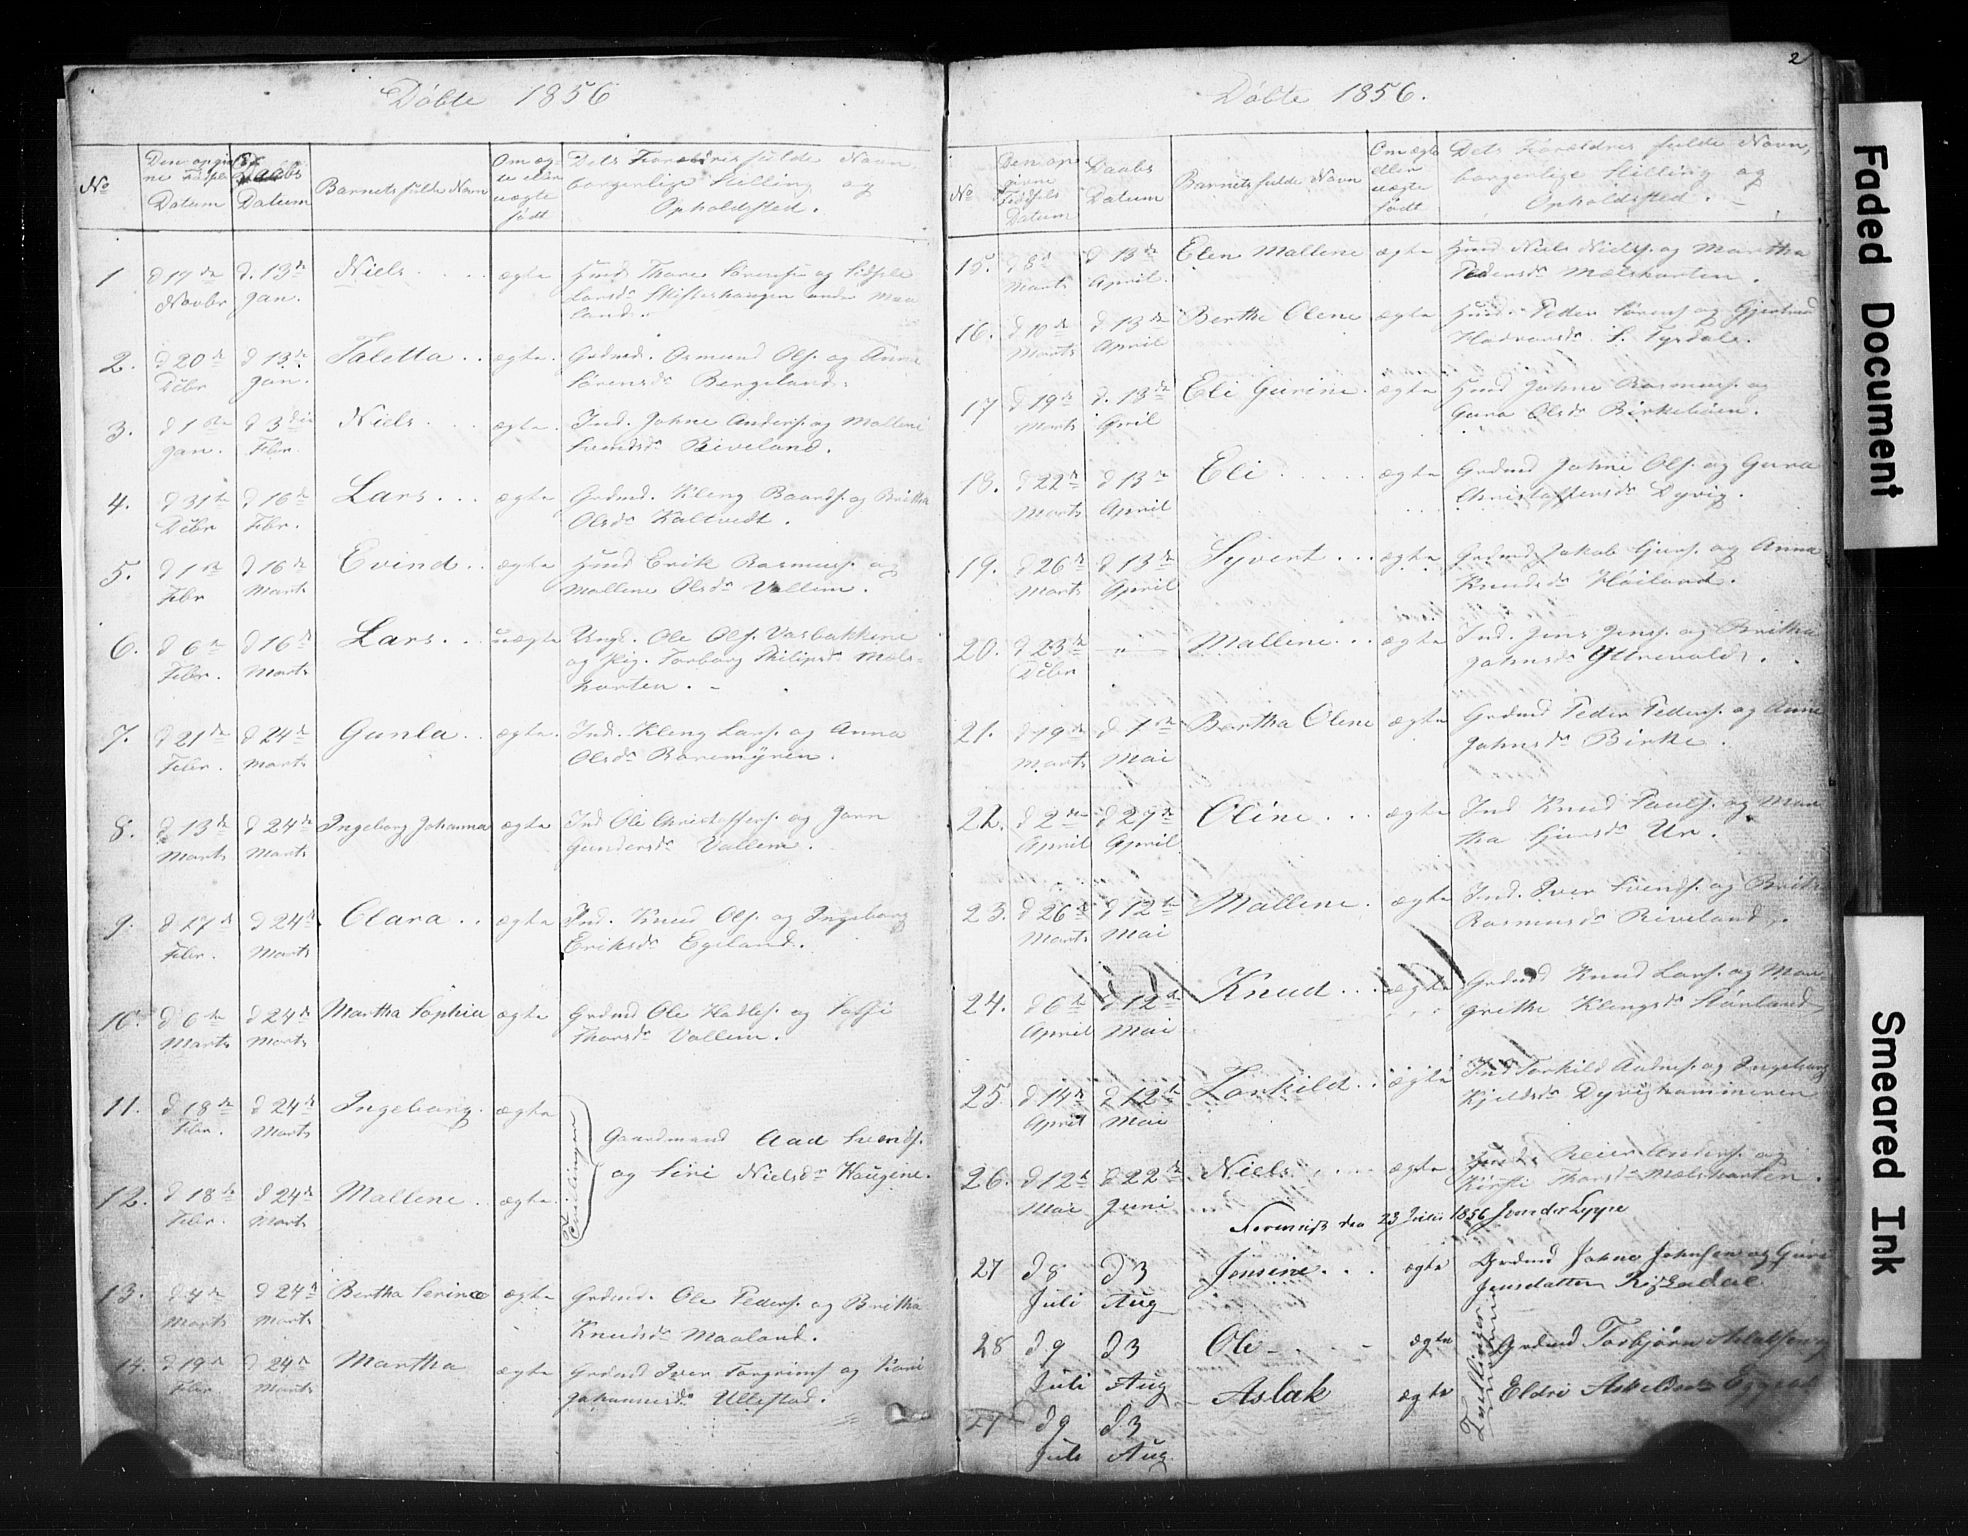 Döbte 1856
No
Den opgivne Födsels Datum
Daabs Datum
Barnets fulde Navn
Om ægte eller uægte födt
Dets Foreldres fulde Navn borgerlige Stilling og Opholdssted.
1 d 17de Novbr d. 13de Jan. Niels . . . ægte
Larsdr Skifteshaugen under Maa
land.
2. d 20de Dcbr d 13de Jan. Taletta . . ægte. Grdmd. Osmund Ols. og Anna
Sörensdr Bergeland.
3. d 1ste Jan. d 3die Febr. Niels . . . ægte. Ind. Johne Anders. og Mallene
Svendsdr Riveland.
4. d 31te Dcbr d 16de Febr. Lars . . . ægte Grdmd. Kleng Baards. og Britha
Olsdr Kaltvedt.
5. d 1ste Febr d 16de Marts Evind . . ægte Huusd Erik Rasmuss. og
Mallene Olsdr Vallem.
6. d 6te Febr. d 16de Marts Lars . . uægte Ungd. Ole Ols. Vasbakkene
og Pig. Torborg Philipsdr Mæls-
horten.
7. d 21de Febr. d 24de Marts Gunla . . ægte. Ind. Kleng Lars. og Anna
Olsdr Boremyren.
8. d 13de Marts d 24de Marts Ingeborg Johanna ægte Ind Ole Christoffers. og
Gundersdr Vallem.
9. d 17de Febr. d 24de Marts Clara . . ægte Ind. Knud Ols. og Ingeborg
Eriksdr Egeland.
10. d 6te Marts d 24de Marts Martha Sophia ægte Grdmd Ole Hadles. og
Thorsdr Vallem.
11. d 18de Febr. d 24de Marts Ingeborg. ægte
Tvillinger
Gaardmand Aad Svends.
og Siri Nielsdr Haugene.
12. d 18de Febr. d 24de Marts Mallene . ægte.
13. d 4de Marts d 24de Marts Bertha Serine ægte Grdmd. Ole Peders. og Britha
Knudsdr Maaland.
14. d 19de Febr d 24de Marts Martha ægte Grdmd Iver Torgrims. og Kari
Johannesdr Ullestad.
2
Döbte 1856.
No
Den opgivne Födsels Datum
Daabs Datum
Barnets fulde Navn
Om ægte eller uægte födt
Dets Forældres fulde Navn, borgerlige Stilling og Opholdssted.
15. d 8de Marts d 13de April. Elen Mallene ægte Huusd Niels Niels. og Martha
Pedersdr Mælshorten.
16. d 10de Marts d 13de April Berthe Olene ægte Huusd. Peder Sörens. og Gjertrud
17 d 19de Marts d. 13de April Eli Gurine. ægte. Huusd Johne Rasmuss. og
Gura Olsdr Birkelöen.
18. d 22de Marts d 13de April Eli . . . . ægte Grdmd Johne Ols. og Gura
Christoffersdr Dyvig.
19. d 26de Marts d 13de April Syvert . . . ægte Grdmd Jakob og Anna
Knudsdr Höiland.
20. d 23de Dcbr — " — Mallene . . ægte Ind. Jens Jens. og Britha
Johnsdr Yttrevold.
21. d 19de Marts d 1ste Mai Bertha Olene ægte Grdmd Peder Peders. og Anne
Johnsdr Birke.
22. d 2den April d 27de April. Oline . . . ægte Ind Knud Pauls. og Mar
tha Ur.
23. d 26de Marts d 12te Mai Mallene. . ægte Ind. Iver Svends. og
Rasmusdr Riveland.
24. d 6te April d 12te Mai Knud . . . ægte Grdmd Knud Lars. og Mar-
grethe Klengsdr Störland
25. d 14de April d 12te Mai Torkild . . ægte Ind Torkild og Ingeborg
Kjeldsdr Dyvigkammeren
26. d 12te Mai d 22de Juni Niels . . . . ægte Reier Anders. og
Kirsti Thorsdr Mælshorten.
den 23 Julii 1856
27 d 8 Juli d 3 Aug Jensine . . . ægte Grdmd Johne Johnsen og Guro
Jensdatter
28 d 9 Juli d 3 Aug Ole - . - ægte
Tvillinger
Grdmd Torbjörn Aslaksen og
29 d 9 Juli d 3 Aug Aslak ægte Eldri
Faded Document
Smeared Ink